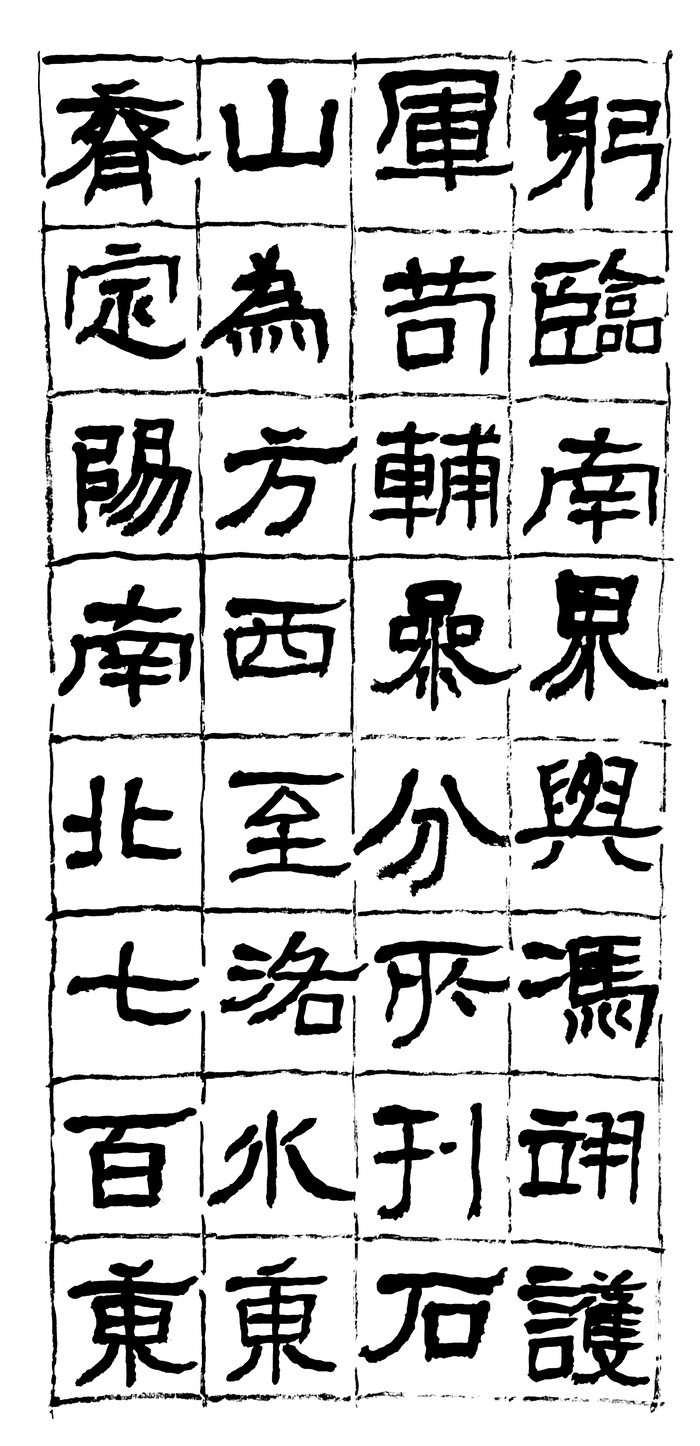 躬臨南界與馮翊護
軍苟輔參分所刊石
山為方西至洛水東
齊定陽南北七百東